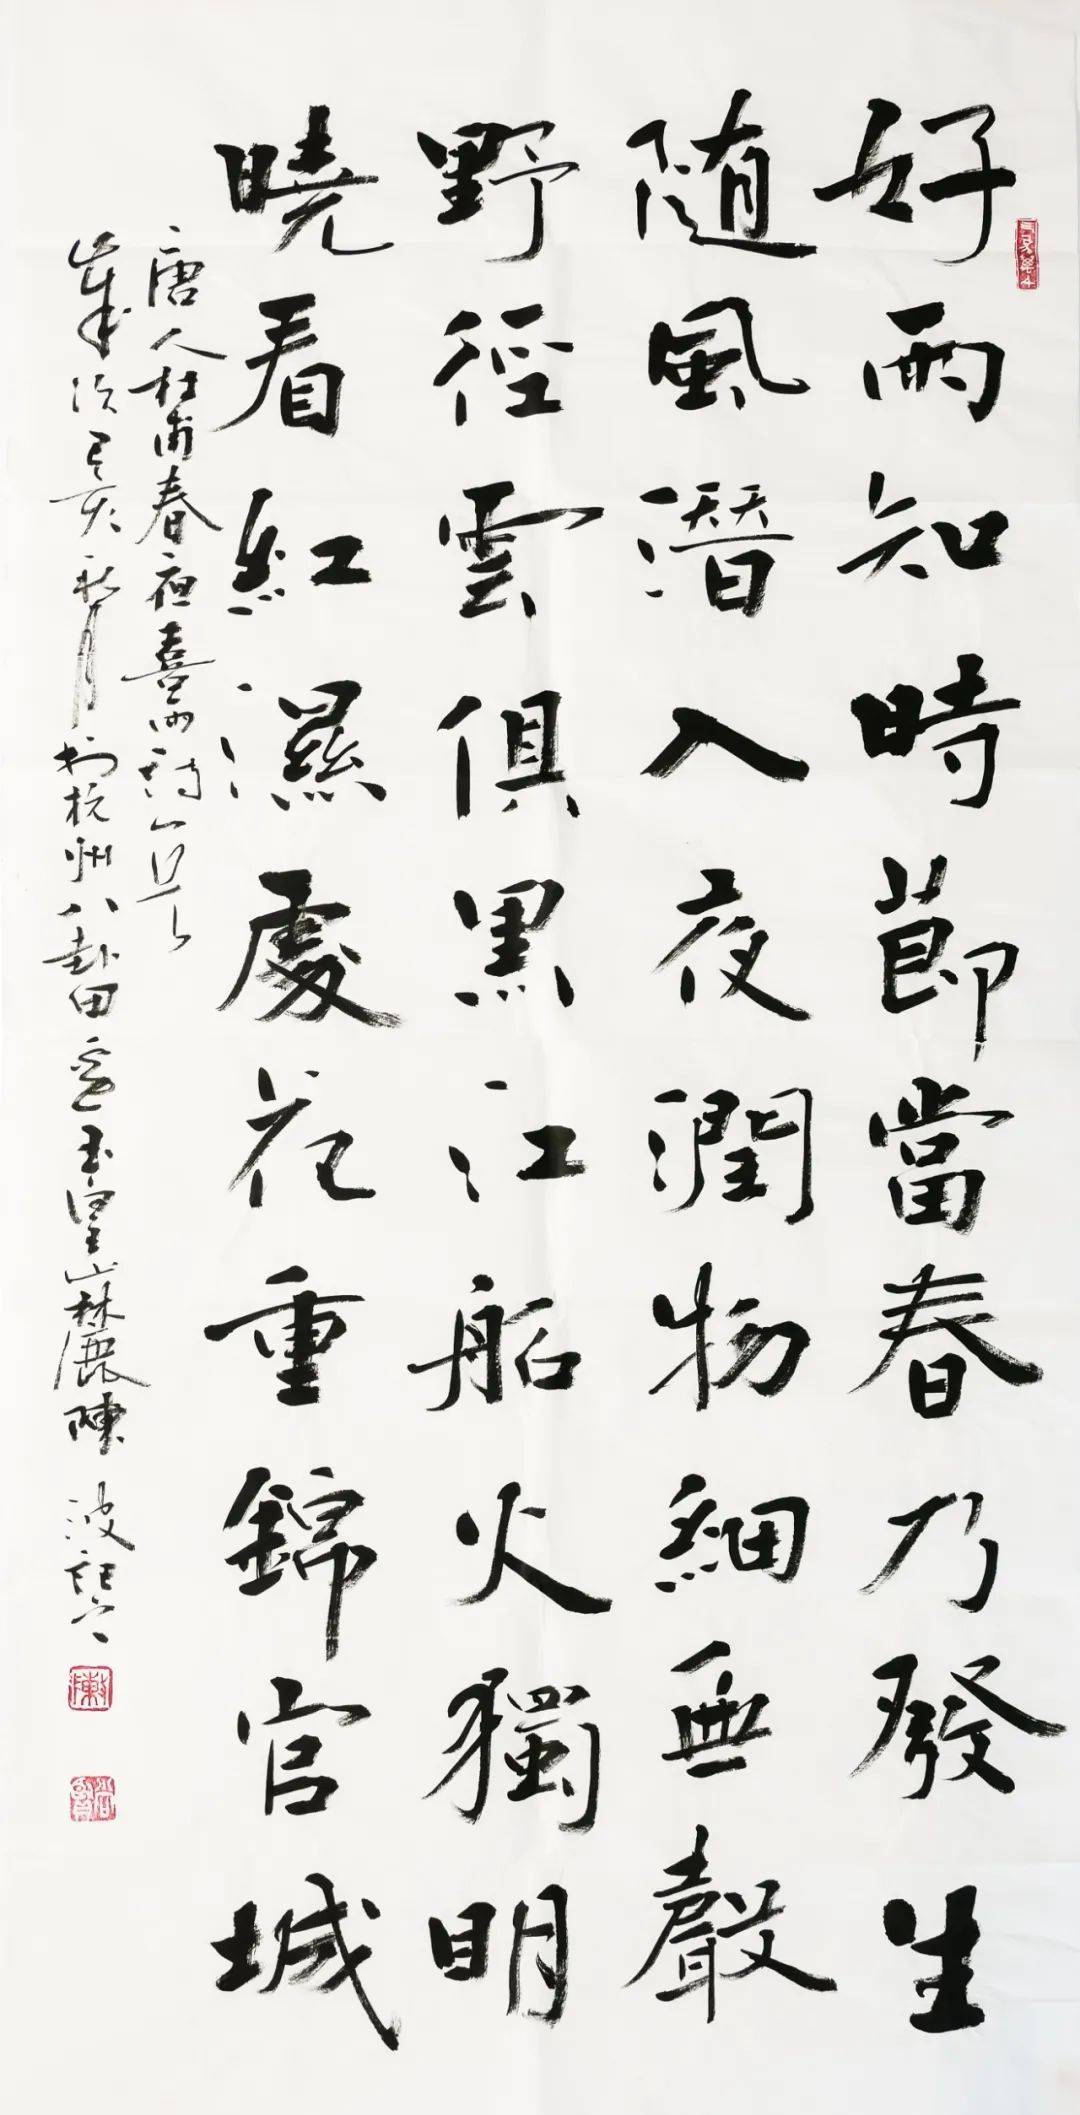 好雨知時節當春乃發生
隨風潛入夜潤物細無聲
野徑雲俱黑江船火獨明
曉看紅濕處花重錦官城
唐人杜甫春夜喜雨詩一首
歲次己亥秋月於杭州八卦田邊玉皇山麓陳波記之
陳